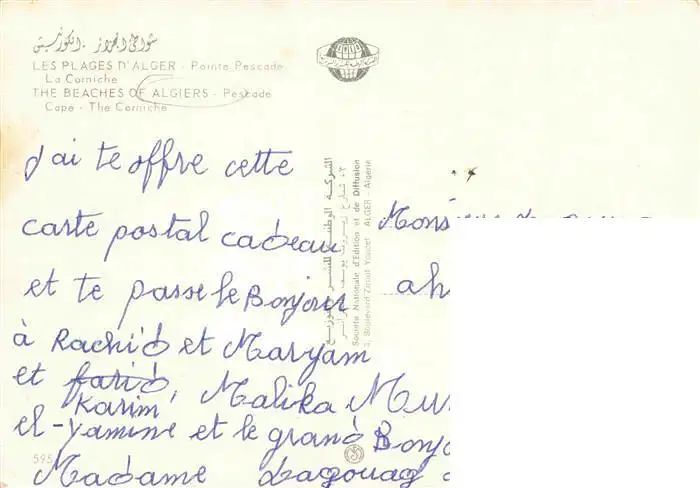 شواطئ الجزائر - الكورنيش
LES PLAGES D'ALGER - Pointe Pescade
La Corniche
THE BEACHES OF ALGIERS - Pescade
Cape - The Corniche
j'ai te offre cette
carte postal cadeau
et te passe le Bonjour
à Rachid et Maryam
et farid,
Karim Malika
el-yamine et le grand Bonjo
Madame Lagouag
Mons
ah
الشركة الوطنية للنشر والتوزيع
٣، شارع زيروت يوسف - الجزائر
Société Nationale d'Edition et de Diffusion
3, Boulevard Zirout Youcef - ALGER - Algérie
595